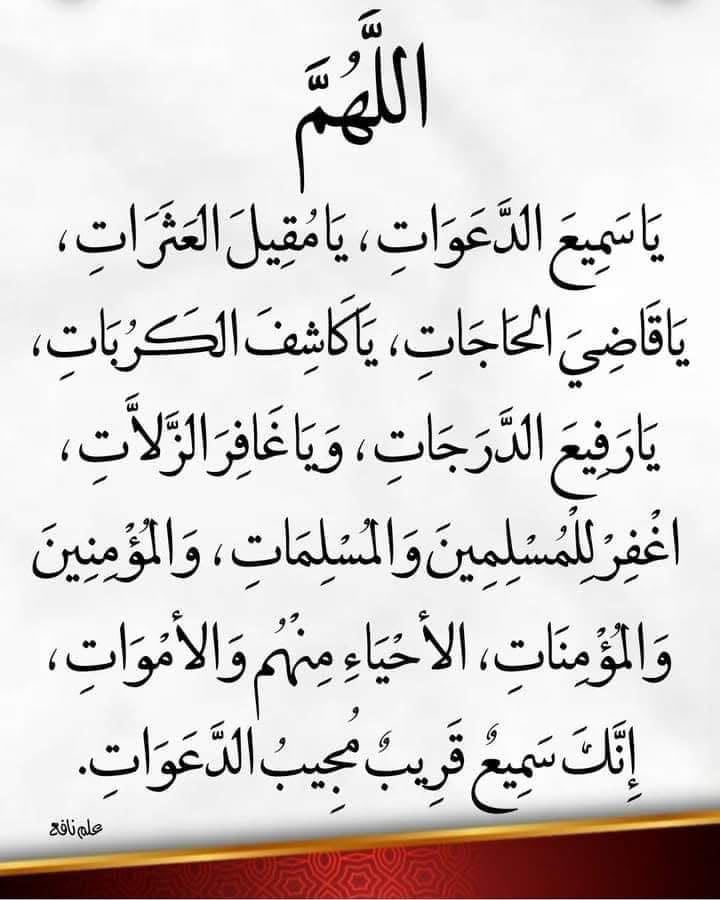 اللَّهُمَّ
يَا سَمِيعَ الدَّعَوَاتِ، يَا مُقِيلَ العَثَرَاتِ،
يَا قَاضِيَ الحَاجَاتِ، يَا كَاشِفَ الكَرُبَاتِ،
يَا رَفِيعَ الدَّرَجَاتِ، وَيَا غَافِرَ الزَّلَّاتِ،
اغْفِرْ لِلْمُسْلِمِينَ وَالمُسْلِمَاتِ، وَالمُؤْمِنِينَ
وَالمُؤْمِنَاتِ، الأَحْيَاءِ مِنْهُم وَالأَمْوَاتِ،
إِنَّكَ سَمِيعٌ قَرِيبٌ مُجِيبُ الدَّعَوَاتِ.
علم نافع